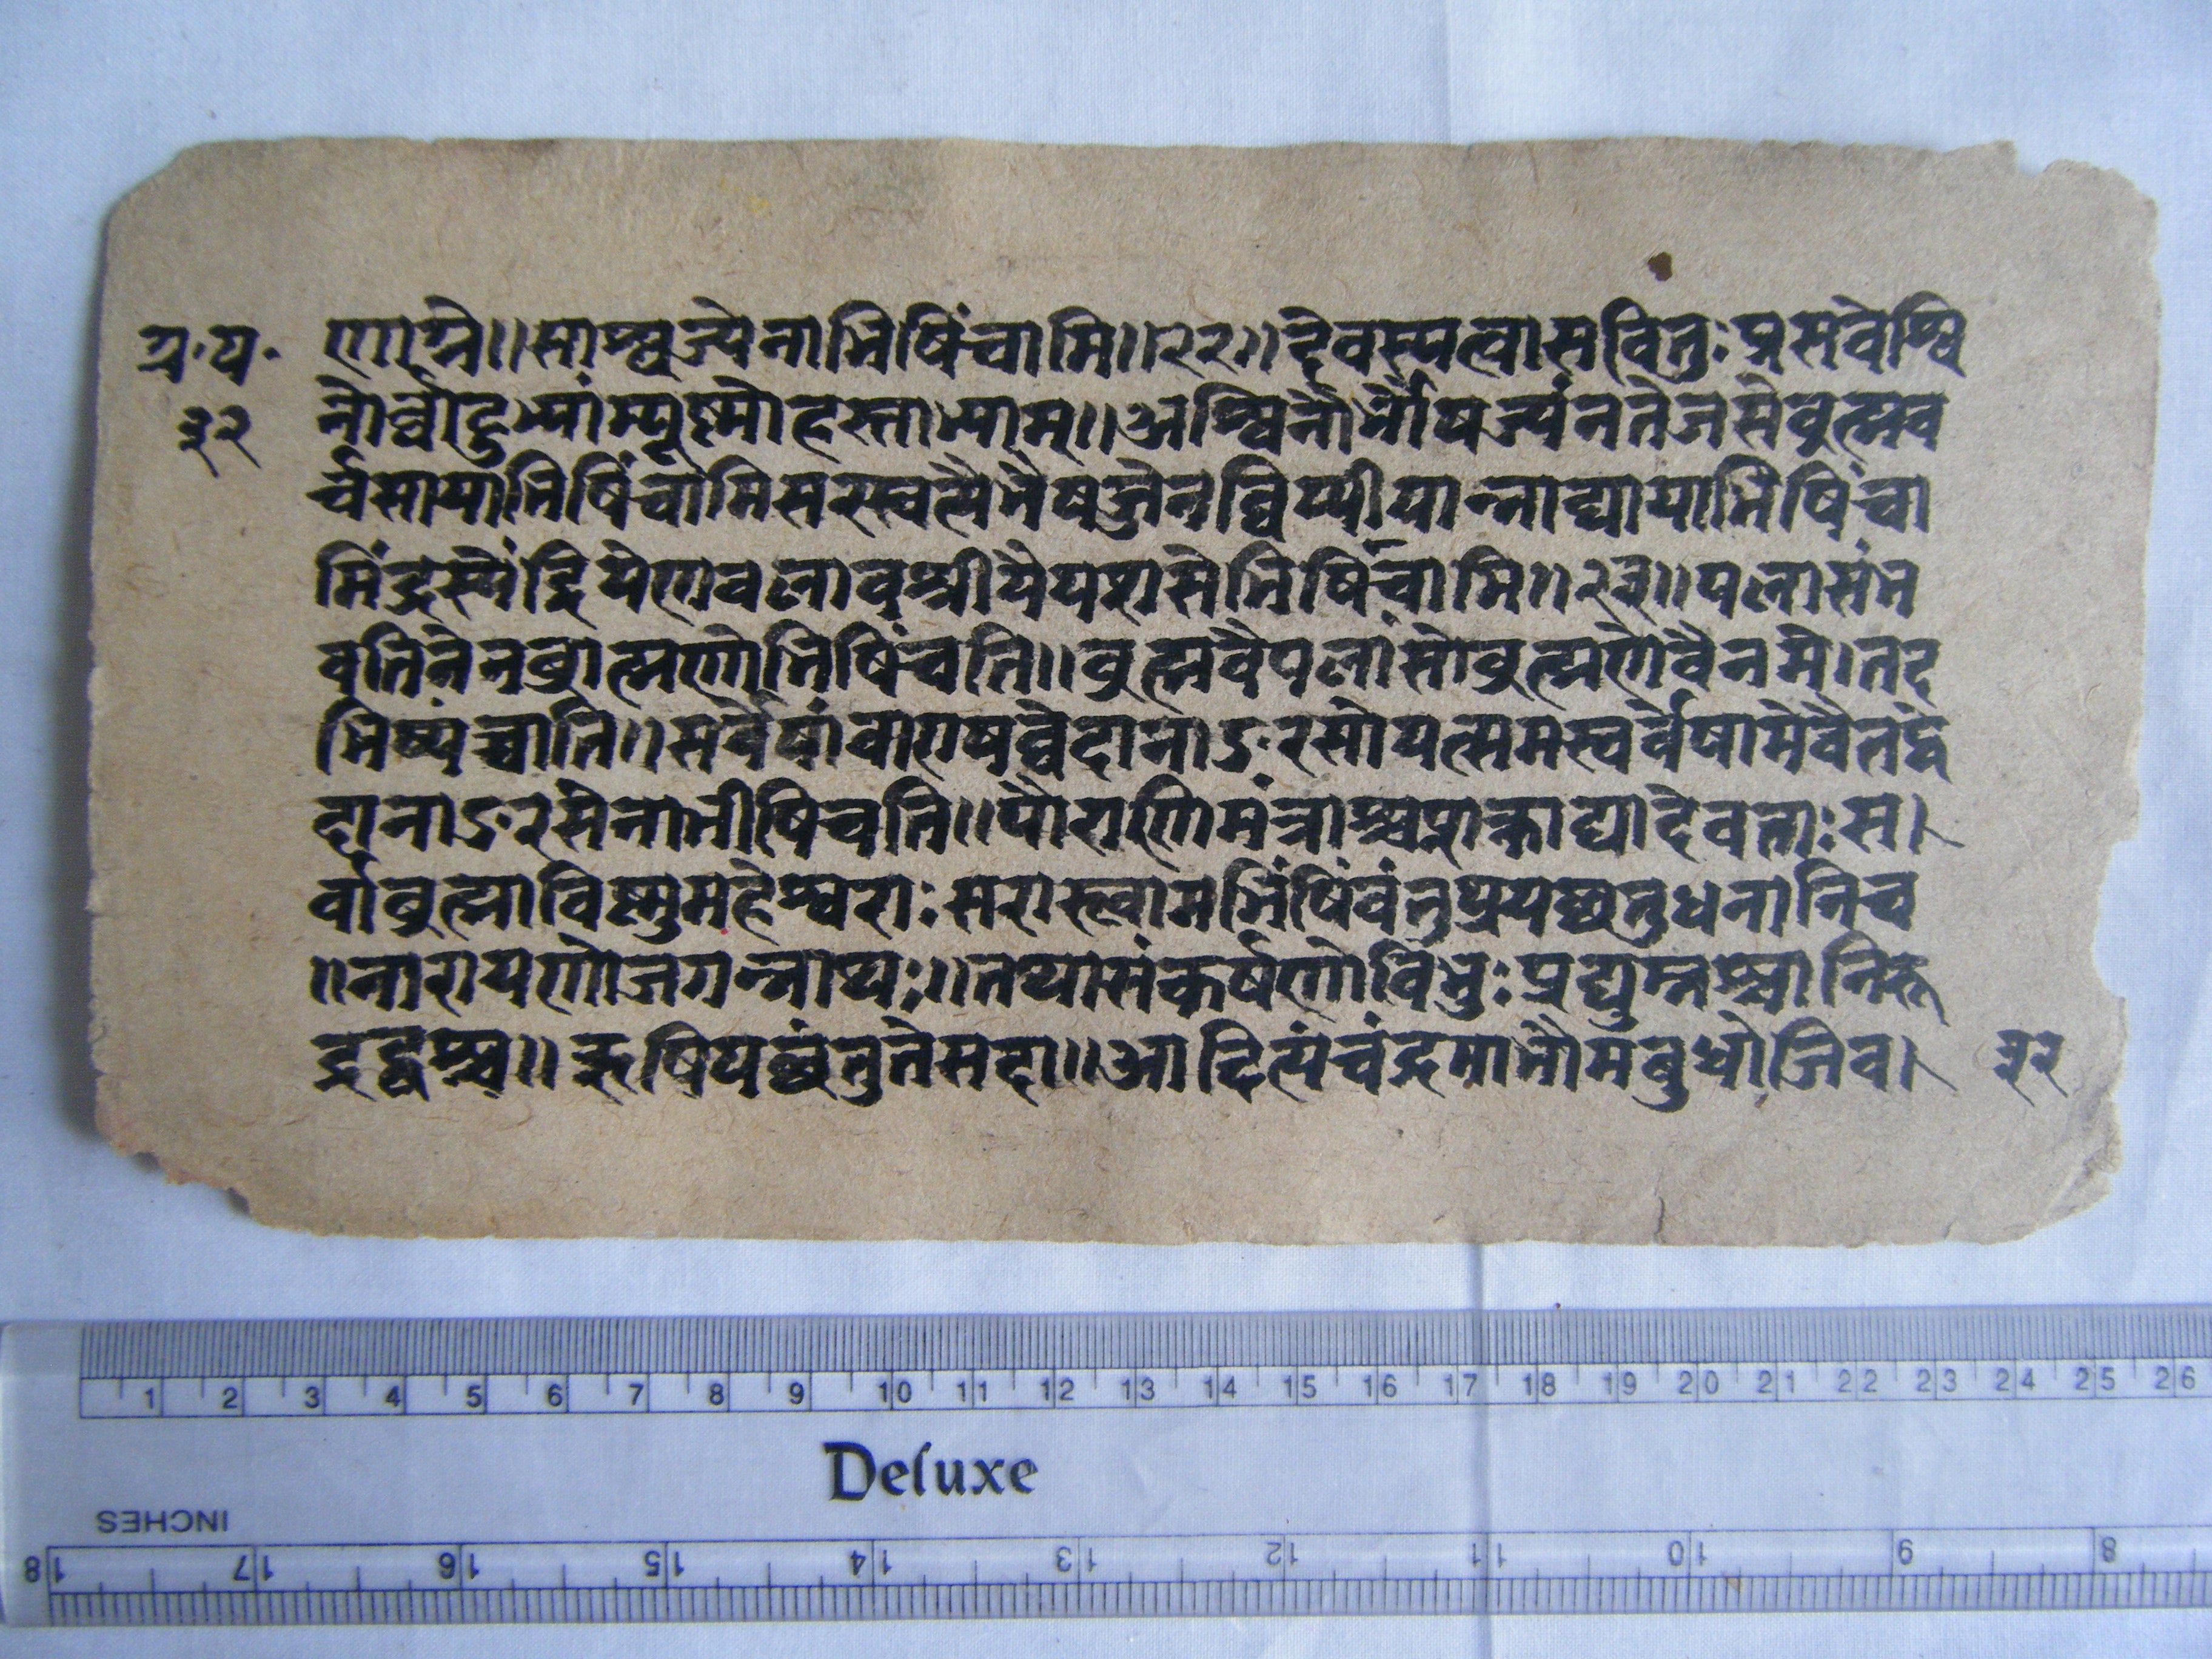 य·प· णाग्ने॥साम्ब्रज्येनाभिषिंचामि॥२२॥देवस्यत्वासवितुःप्रसवेश्वि
३२ नोर्व्वाहुभ्यांम्पूष्मोहस्ताभ्याम्॥अश्विनोर्भैषज्यंनतेजसेव्रुत्मव
र्च्चसायाभिषिंचामिसरस्वत्यैभैषज्जेनव्विर्य्यायान्नाद्यायाभिषिंचा
मिंद्रस्येंद्रियेणवलावश्रीयैयशसेभिषिंचामि॥२३॥पलासंभ
वतितेनब्रात्मणोभिषिंचति॥व्रुत्मवैपलांसोव्रुत्मणैवैनमे।तद
भिष्यंच्चाति॥सर्वेषांवाएषव्वेदानाऽरसोयत्समस्वर्वेषामेवैतंद्वे
दानाऽरसेनाभीषिचति॥पौराणिमंत्राश्चप्राक्ताद्यादेवताःस।
र्वाब्रुत्माविष्मुमहेश्वराः सरास्त्वामभिंषिंवंतुप्रयछ्यतुधनानिच
॥नारायणोजगन्नाथः॥तथासंकर्षणोविभुःप्रद्युम्नश्चानिरू
द्रद्धश्च॥ऋषियछ्यंतुतेसदा॥आदित्यंचंद्रमाभौमबुधोजिव। ३२
1 2 3 4 5 6 7 8 9 10 11 12 13 14 15 16 17 18 19 20 21 22 23 24 25 26
Deluxe
INCHES
18 17 16 15 14 13 12 11 10 9 8